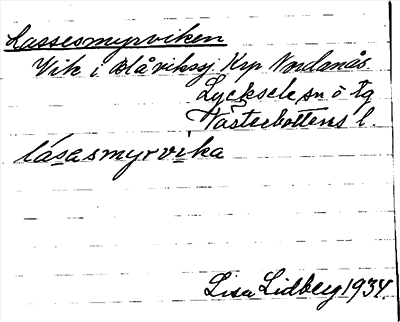 Lassesmyrviken
Vik i Blåviksj. Krp Nordanås
Lycksele sn o tg
Västerbottens l.
lásasmyrvika
Lisa Lidberg 1934.